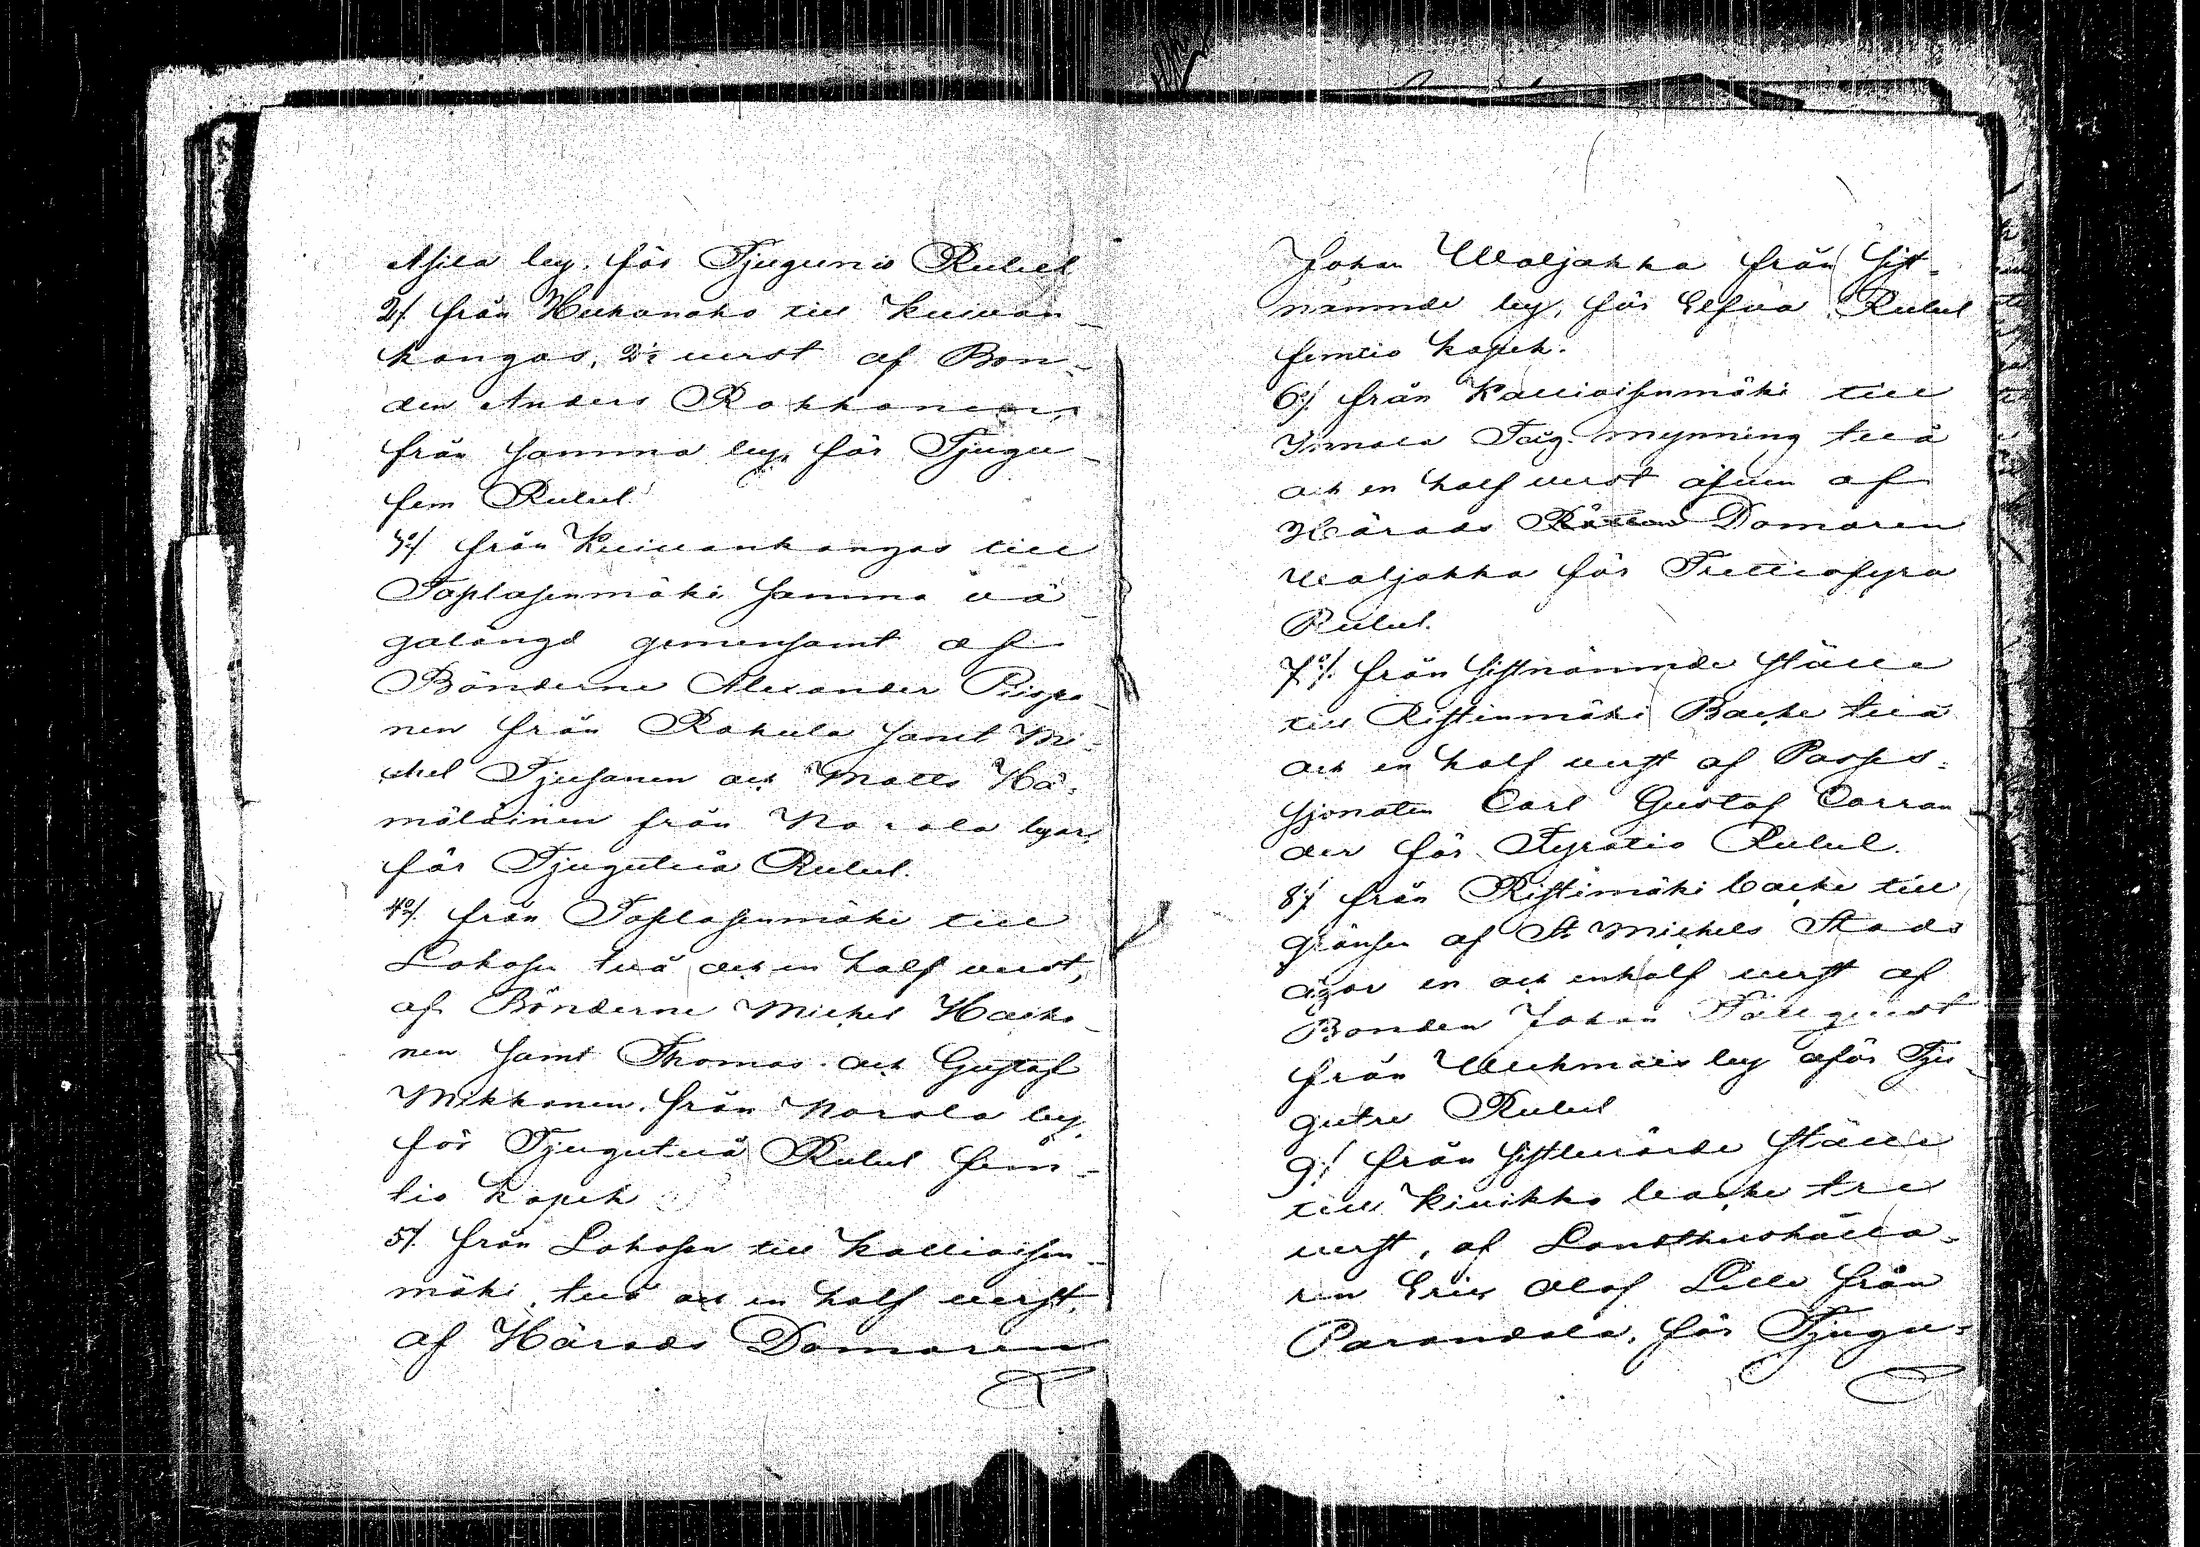 Asila by, för Tjugunio Rubel
2/. från Hukanaho till Kuivan-
kangas, 2½ verst af Bon-
den Anders Rokkanen
från samma by, för Tjugu-
fem Rubel
3o/. från Kuivankangas till
Taplasenmäki samma vä-
galängd gemensamt af
Bönderne Alexander Piispa-
nen från Rahula samt Mi-
chel Tjusanen och Matts Hä-
mäläinen från Norola byar,
för Tjugutvå Rubel.
4o/. från Taplasenmäki till
Lahosen två och en half verst,
af Bönderne Michel Hacko-
nen samt Thomas och Gustaf
Mikkonen från Norola by,
för Tjugutvå Rubel fem-
tio kopek
5/. från Lahosen till Kallioisen-
mäki, två och en half verst,
af Härads Domaren
Johan Waljakka från sist-
nämnde by, för Elfva Rubel
femtio kopek.
6/. från Kallioisenmäki till
Väg mynning två
och en half verst äfven af
Härads Domaren
Waljakka för Trettiofyra
Rubel.
7o/. från sistnämnde ställe
till Ristinmäki Backe två
och en half verst af Posses-
sjonaten Carl Gustaf Carran-
der för Fyratio Rubel.
8/. från Ristimäki backe till
gränsen af St Michels Stads
ägor en och en half verst af
Bonden Johan Tallqvist
från by för Tju-
gutre Rubel
9/. från sistberörde ställe
till Kivikko backe tre
verst, af Landthushålla-
ren Eric Olof Lille från
Parandala, för Tjugu-